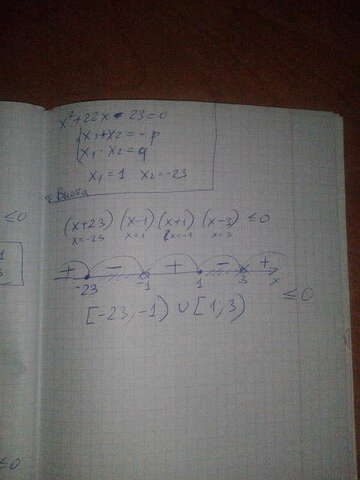 x²+22x-23=0
x₁+x₂=-p
x₁-x₂=q
x₁=1 x₂=-23
т. Виета
≤0
(x+23)(x-1)(x+1)(x-3)≤0
x=-23 x=1 x=-1 x=3
+ - + - +
-23 -1 1 3 x
≤0
[-23,-1) ∪ [1,3)
≤0